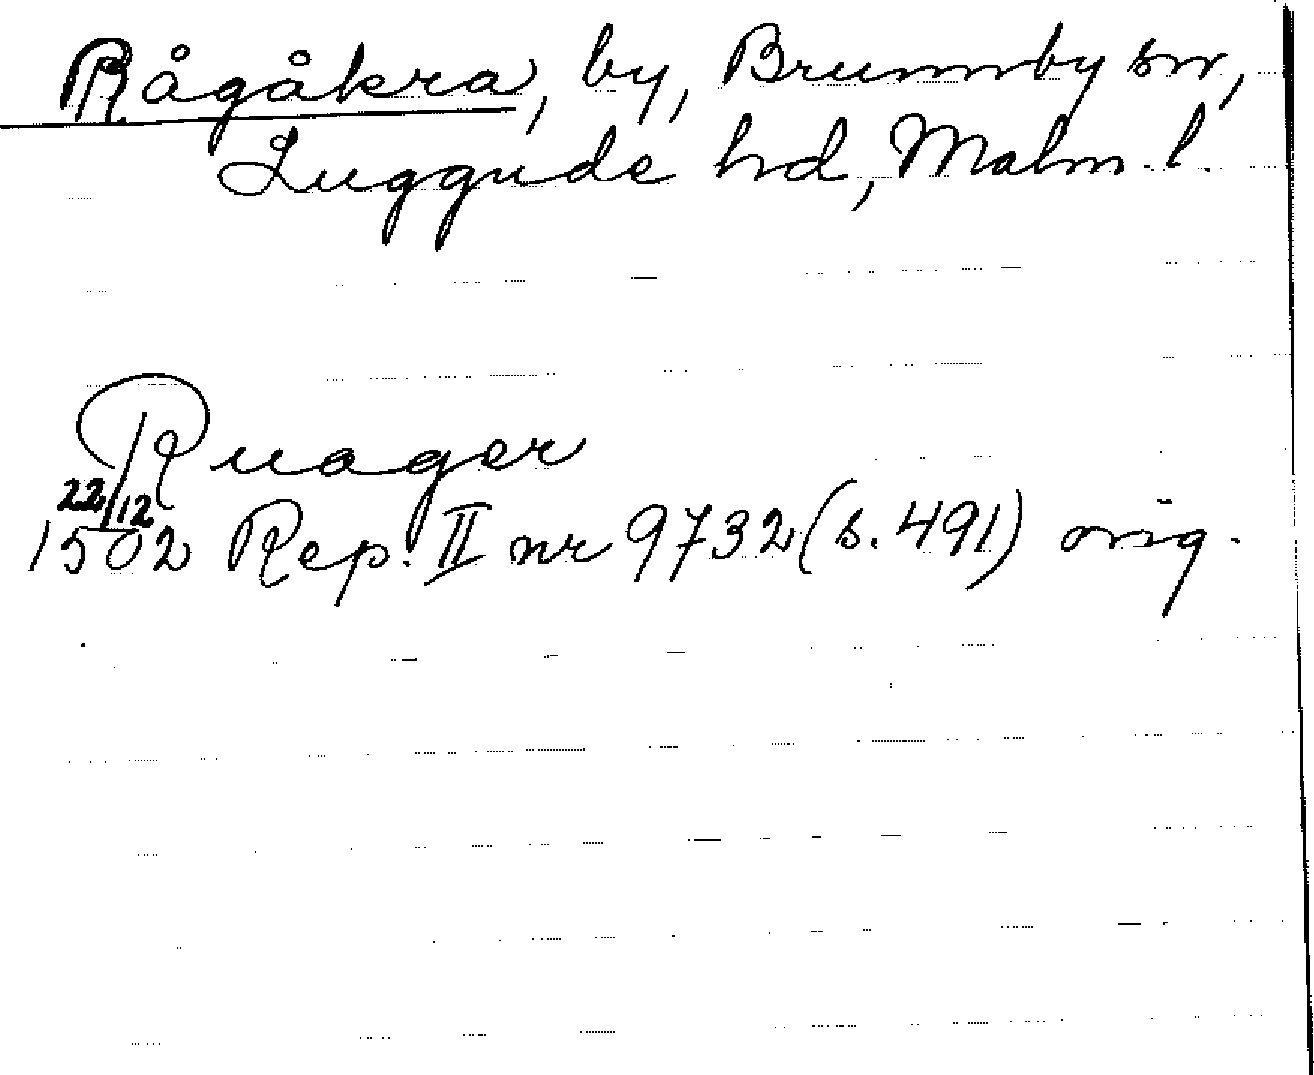 Rågåkra, by, Brunnby sn,
Luggude hd, Malm. l.
Ruager
22/12
1502 Rep. II nr 9732 (s. 491) orig.